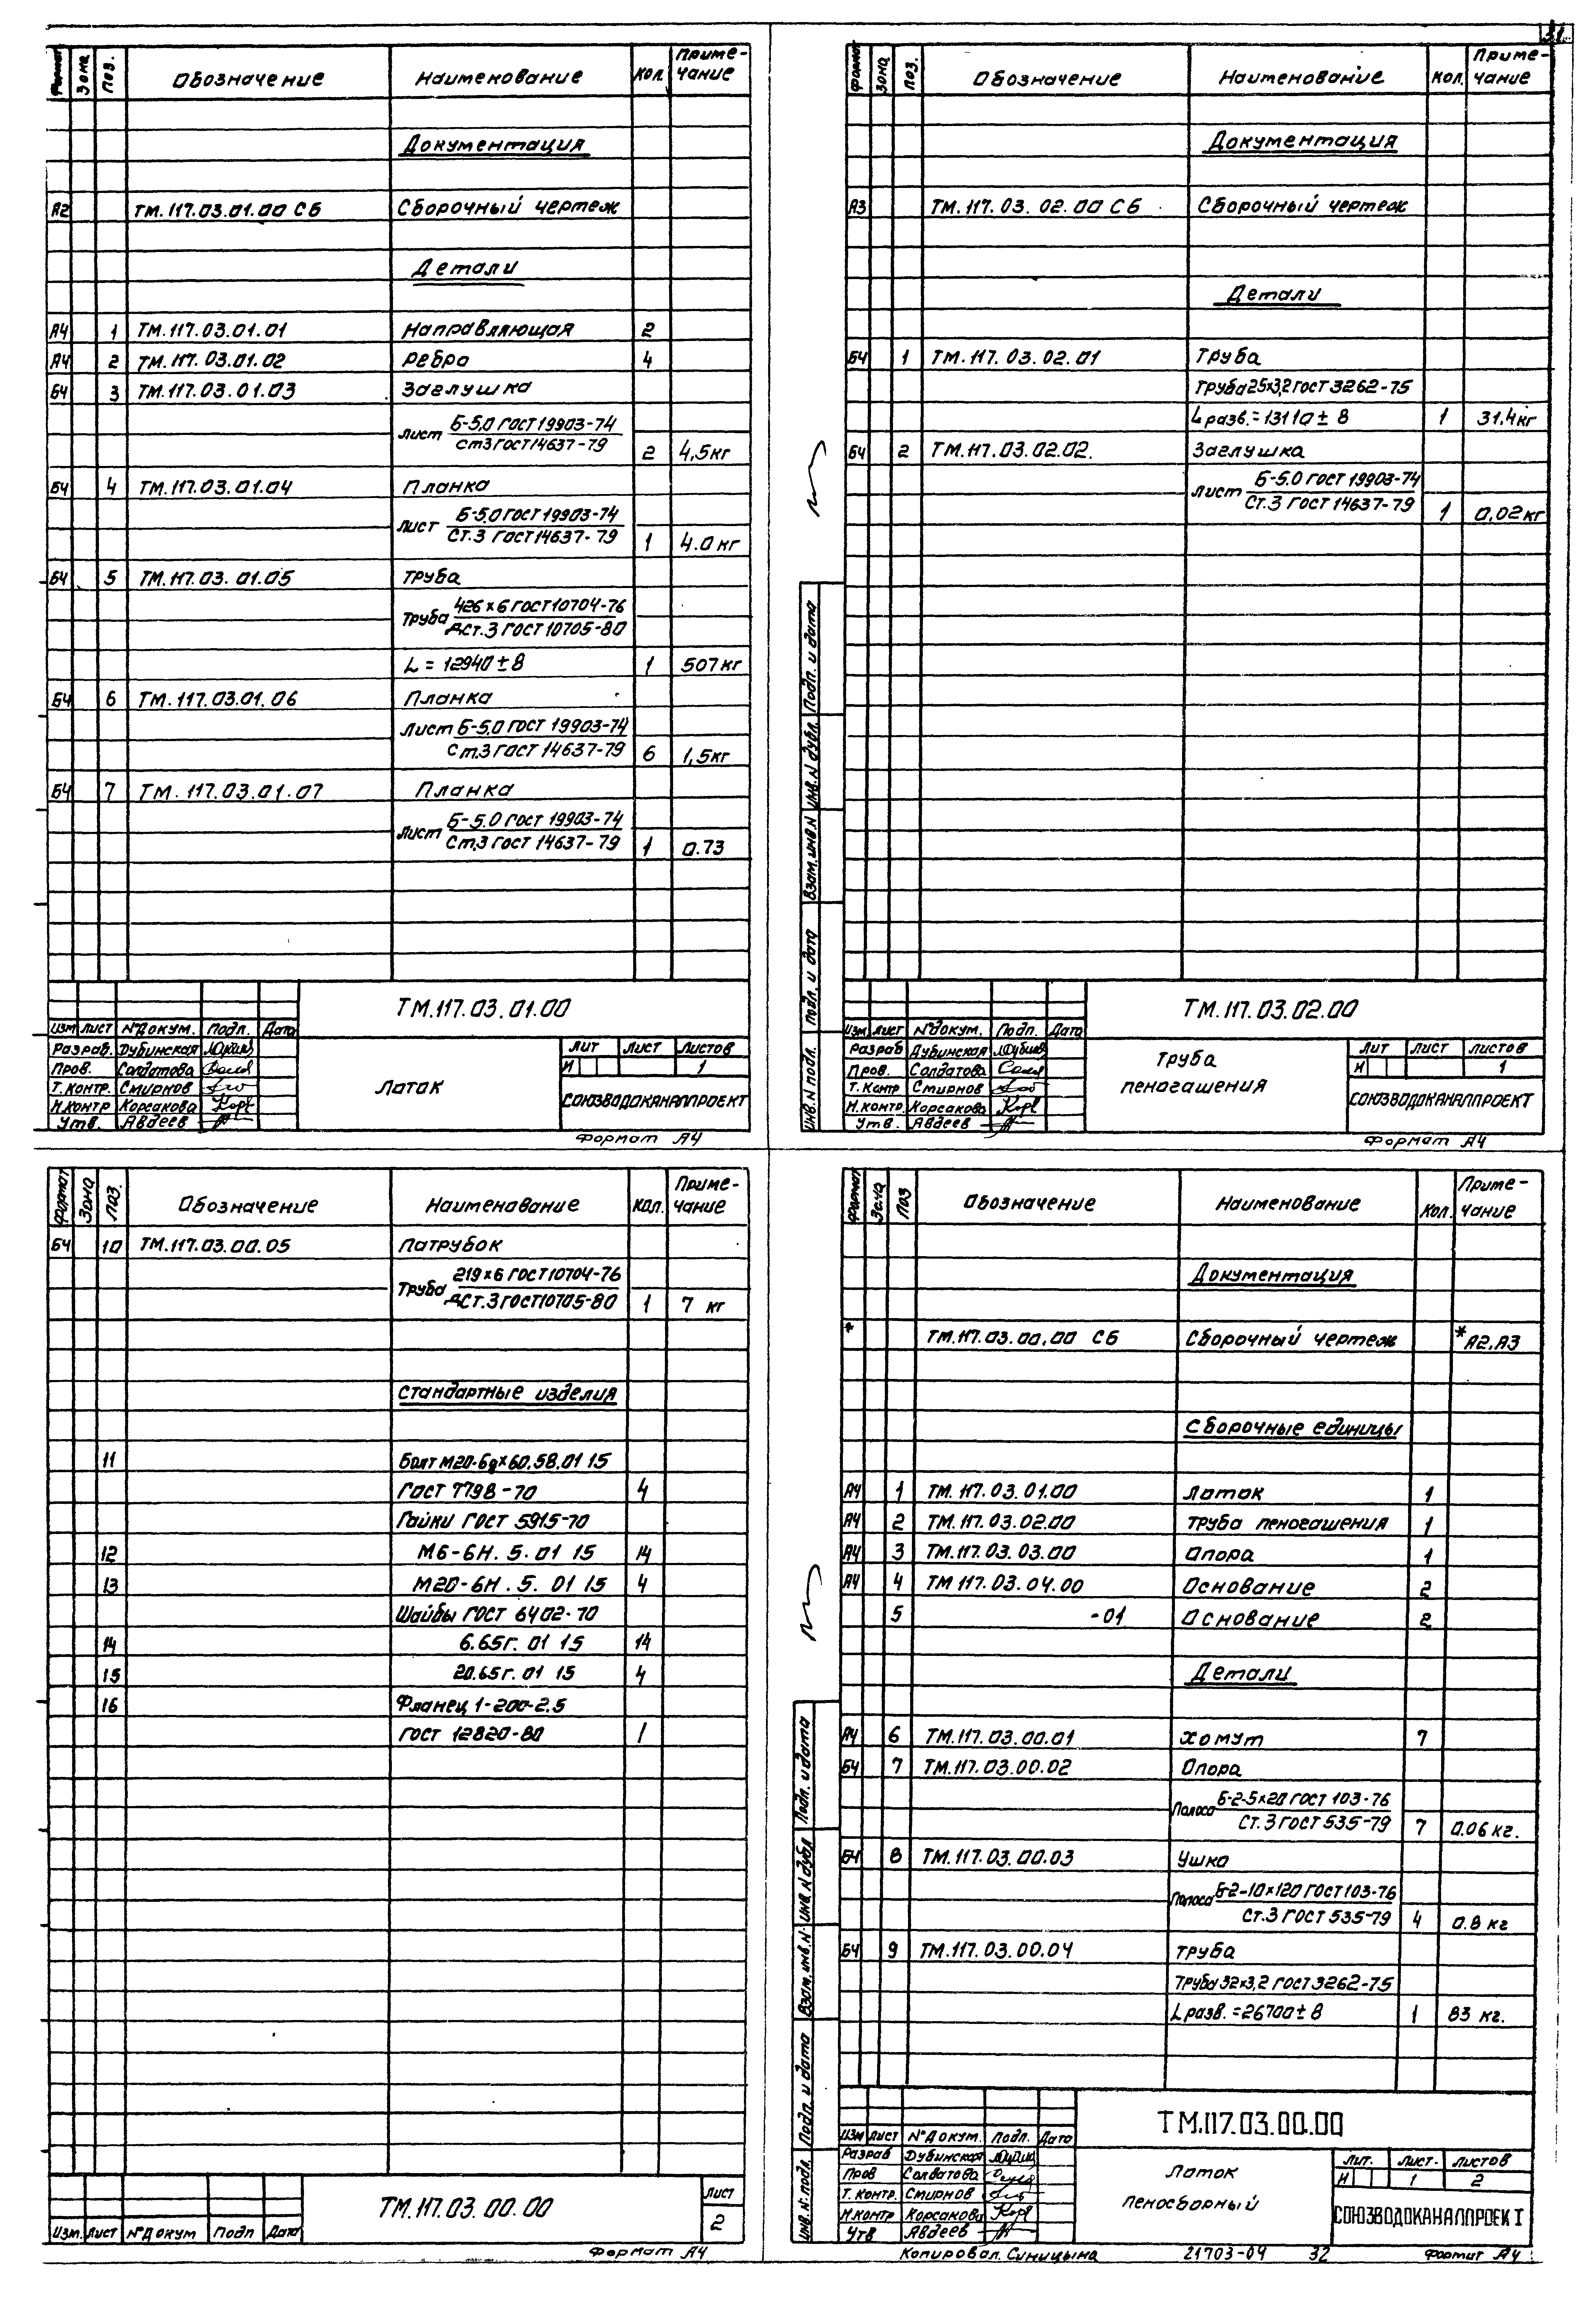 31
Формат Зона Поз. Обозначение Наименование Кол. Приме-
чание
Документация
А2 ТМ.117.03.01.00 СБ Сборочный чертеж
Детали
А4 1 ТМ.117.03.01.01 Направляющая 2
А4 2 ТМ.117.03.01.02 Ребро 4
БЧ 3 ТМ.117.03.01.03 Заглушка
Лист Б-5,0 ГОСТ 19903-74
Ст3 ГОСТ 14637-79 2 4,5кг
БЧ 4 ТМ.117.03.01.04 Планка
Лист Б-5,0 ГОСТ 19903-74
Ст.3 ГОСТ 14637-79 1 4.0 кг
БЧ 5 ТМ.117.03.01.05 Труба
Труба 426×6 ГОСТ 10704-76
ДСт.3 ГОСТ 10705-80
L = 12940±8 1 507 кг
БЧ 6 ТМ.117.03.01.06 Планка
Лист Б-5,0 ГОСТ 19903-74
Ст.3 ГОСТ 14637-79 6 1,5кг
БЧ 7 ТМ.117.03.01.07 Планка
Лист Б-5.0 ГОСТ 19903-74
Ст.3 ГОСТ 14637-79 1 0.73
ТМ.117.03.01.00
Изм Лист №докум. Подп. Дата
Разраб. Дубинская
Пров. Солдатова
Т.контр. Смирнов
Н.контр Корсакова
Утв. Авдеев
Лоток
Лит Лист Листов
И 1
СОЮЗВОДОКАНАЛПРОЕКТ
Формат А4
Формат Зона Поз. Обозначение Наименование Кол. Приме-
чание
Документация
А3 ТМ.117.03.02.00 СБ Сборочный чертеж
Детали
БЧ 1 ТМ.117.03.02.01 Труба
Труба 25×3,2 ГОСТ 3262-75
L разв.=13110±8 1 31,4кг
БЧ 2 ТМ.117.03.02.02. Заглушка
Лист Б-5.0 ГОСТ 19903-74
Ст.3 ГОСТ 14637-79 1 0,02кг
Инв.N подл. Подп. и дата Взам.инв.N Инв.N дубл. Подп. и дата
ТМ.117.03.02.00
Изм Лист №докум. Подп. Дата
Разраб Дубинская
Пров. Солдатова
Т.контр Смирнов
Н.контр. Корсакова
Утв. Авдеев
Труба
пеногашения
Лит Лист Листов
И 1
СОЮЗВОДОКАНАЛПРОЕКТ
Формат А4
Формат Зона Поз. Обозначение Наименование Кол. Приме-
чание
БЧ 10 ТМ.117.03.00.05 Патрубок
Труба 219×6 ГОСТ 10704-76
ДСт.3 ГОСТ 10705-80 1 7 кг
Стандартные изделия
11 Болт М20-6g×60.58.01 15
ГОСТ 7798-70 4
Гайки ГОСТ 5915-70
12 М6-6Н.5.01 15 14
13 М20-6Н.5.01 15 4
Шайбы ГОСТ 6402-70
14 6.65Г.01 15 14
15 20.65Г.01 15 4
16 Фланец 1-200-2.5
ГОСТ 12820-80 1
ТМ.117.03.00.00
Лист
2
Изм. Лист №докум Подп Дата
Формат А4
Формат Зона Поз Обозначение Наименование Кол. Приме-
чание
Документация
* ТМ.117.03.00.00 СБ Сборочный чертеж *А2,А3
Сборочные единицы
А4 1 ТМ.117.03.01.00 Лоток 1
А4 2 ТМ.117.03.02.00 Труба пеногашения 1
А4 3 ТМ.117.03.03.00 Опора 1
А4 4 ТМ 117.03.04.00 Основание 2
5 -01 Основание 2
Детали
А4 6 ТМ.117.03.00.01 Хомут 7
БЧ 7 ТМ.117.03.00.02 Опора
Полоса Б-2-5×20 ГОСТ 103-76
Ст.3 ГОСТ 535-79 7 0.06 кг.
БЧ 8 ТМ.117.03.00.03 Ушко
Полоса Б-2-10×120 ГОСТ 103-76
Ст.3 ГОСТ 535-79 4 0.8 кг
БЧ 9 ТМ.117.03.00.04 Труба
Труба 32×3,2 ГОСТ 3262-75
L разв.=26700±8 1 83 кг.
Инв.N подл. Подп. и дата Взам.инв.N Инв.N дубл Подп. и дата
ТМ.117.03.00.00
Изм Лист №докум. Подп. Дата
Разраб Дубинская
Пров Солдатова
Т.контр. Смирнов
Н.контр Корсакова
Утв Авдеев
Лоток
пеносборный
Лит. Лист. Листов
И 1 2
СОЮЗВОДОКАНАЛПРОЕКТ
Копировал. Синицына 21703-04 32 Формат А4